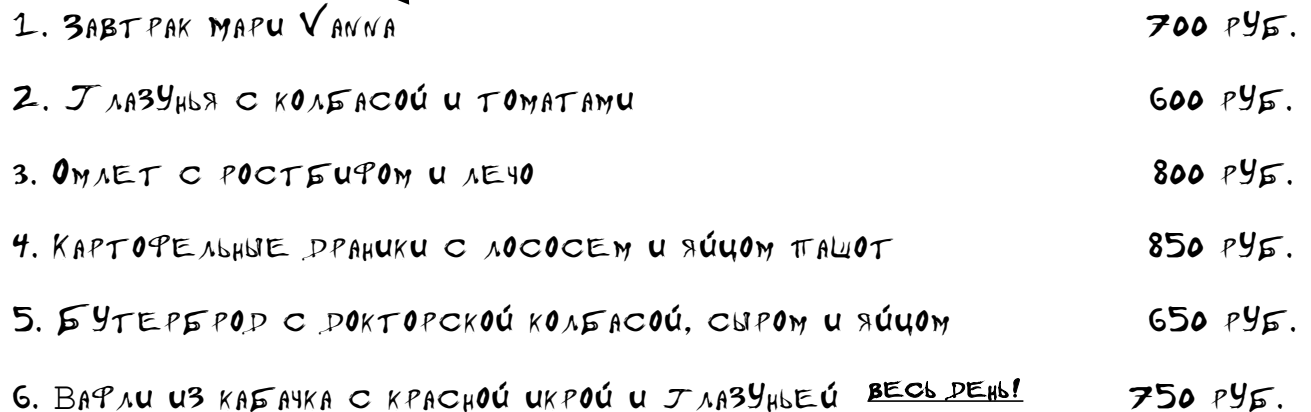 1. Завтрак мари Vanna 700 руб.
2. Глазунья с колбасой и томатами 600 руб.
3. Омлет с ростбифом и лечо 800 руб.
4. Картофельные драники с лососем и яйцом пашот 850 руб.
5. Бутерброд с докторской колбасой, сыром и яйцом 650 руб.
6. Вафли из кабачка с красной икрой и глазуньей весь день! 750 руб.